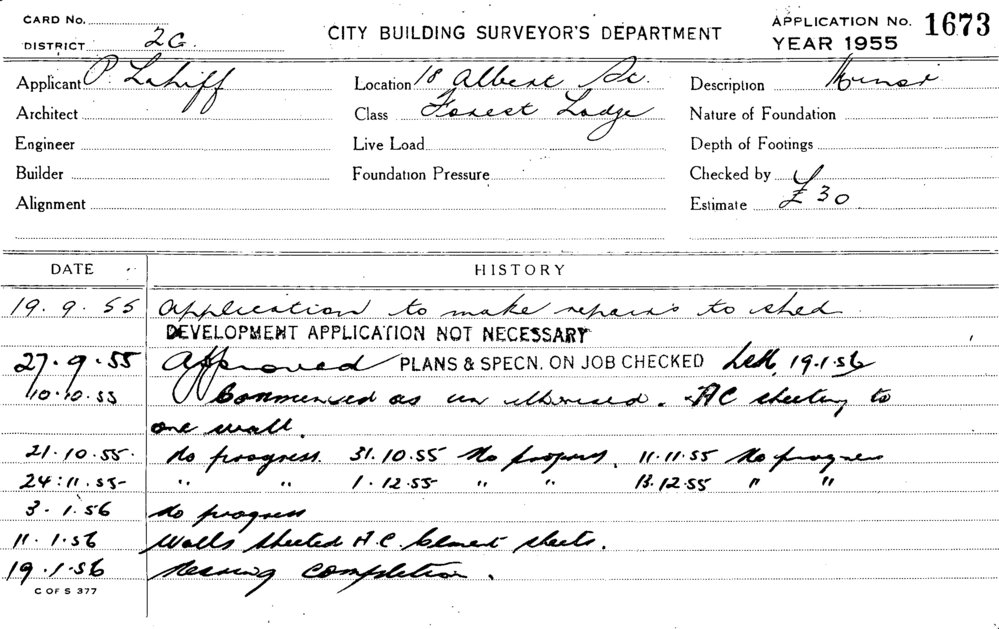 CARD No.
DISTRICT 2G
CITY BUILDING SURVEYOR'S DEPARTMENT
APPLICATION No. 1673
YEAR 1955
Applicant P. Lahiff
Location 18 Albert St.
Description Minor
Architect
Class Forest Lodge
Nature of Foundation
Engineer
Live Load
Depth of Footings
Builder
Foundation Pressure
Checked by
Alignment
Estimate £30
DATE HISTORY
19.9.55 Application to make repairs to shed
DEVELOPMENT APPLICATION NOT NECESSARY
27.9.55 Approved PLANS & SPECN. ON JOB CHECKED 19.1.56
10.10.55 Commenced as AC sheeting to
one wall.
21.10.55. No progress. 31.10.55 No progress. 11.11.55 No progress
24.11.55 " " 1.12.55 " " 13.12.55 " "
3.1.56 No progress
11.1.56 Walls sheeted A.C. Cement sheets.
19.1.56 Nearing completion.
C OF S 377